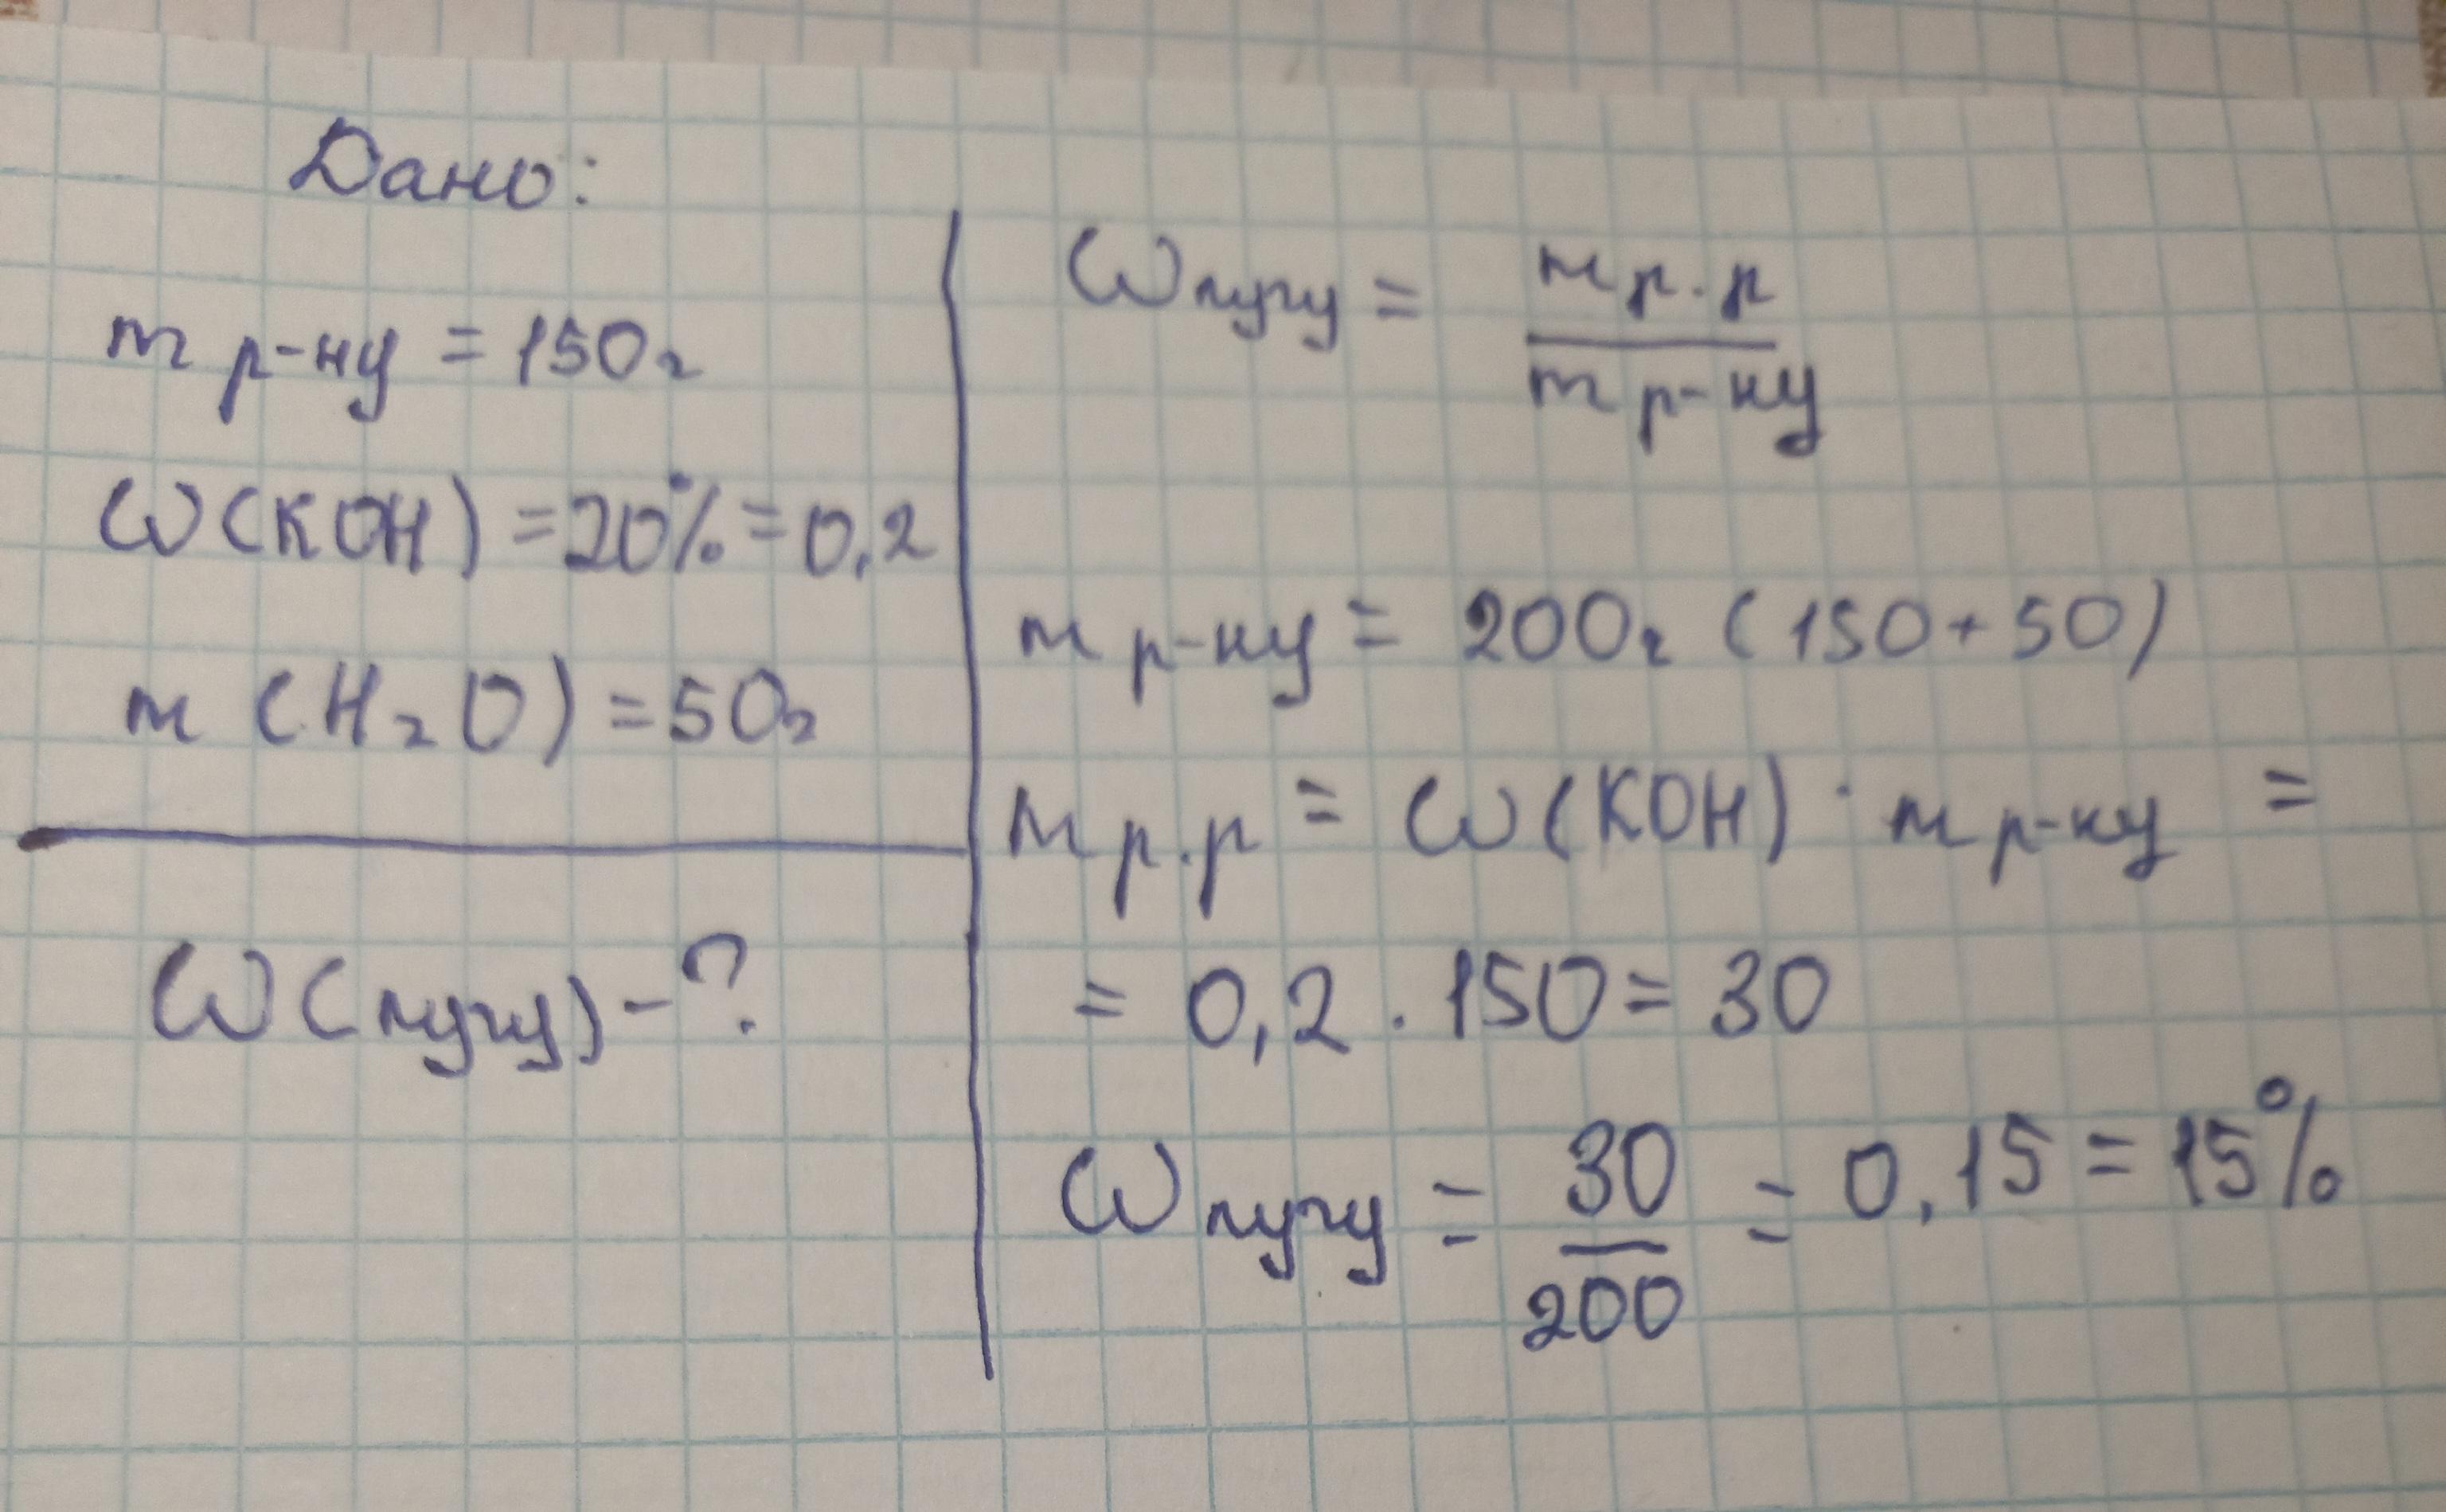 Дано:
m р-ну = 150г
ω(KOH) = 20% = 0,2
m (H₂O) = 50г
ω(лугу) - ?
ω лугу = m р.р / m р-ну
m р-ну = 200г (150 + 50)
m р.р = ω(KOH) · m р-ну =
= 0,2 · 150 = 30
ω лугу = 30 / 200 = 0,15 = 15%